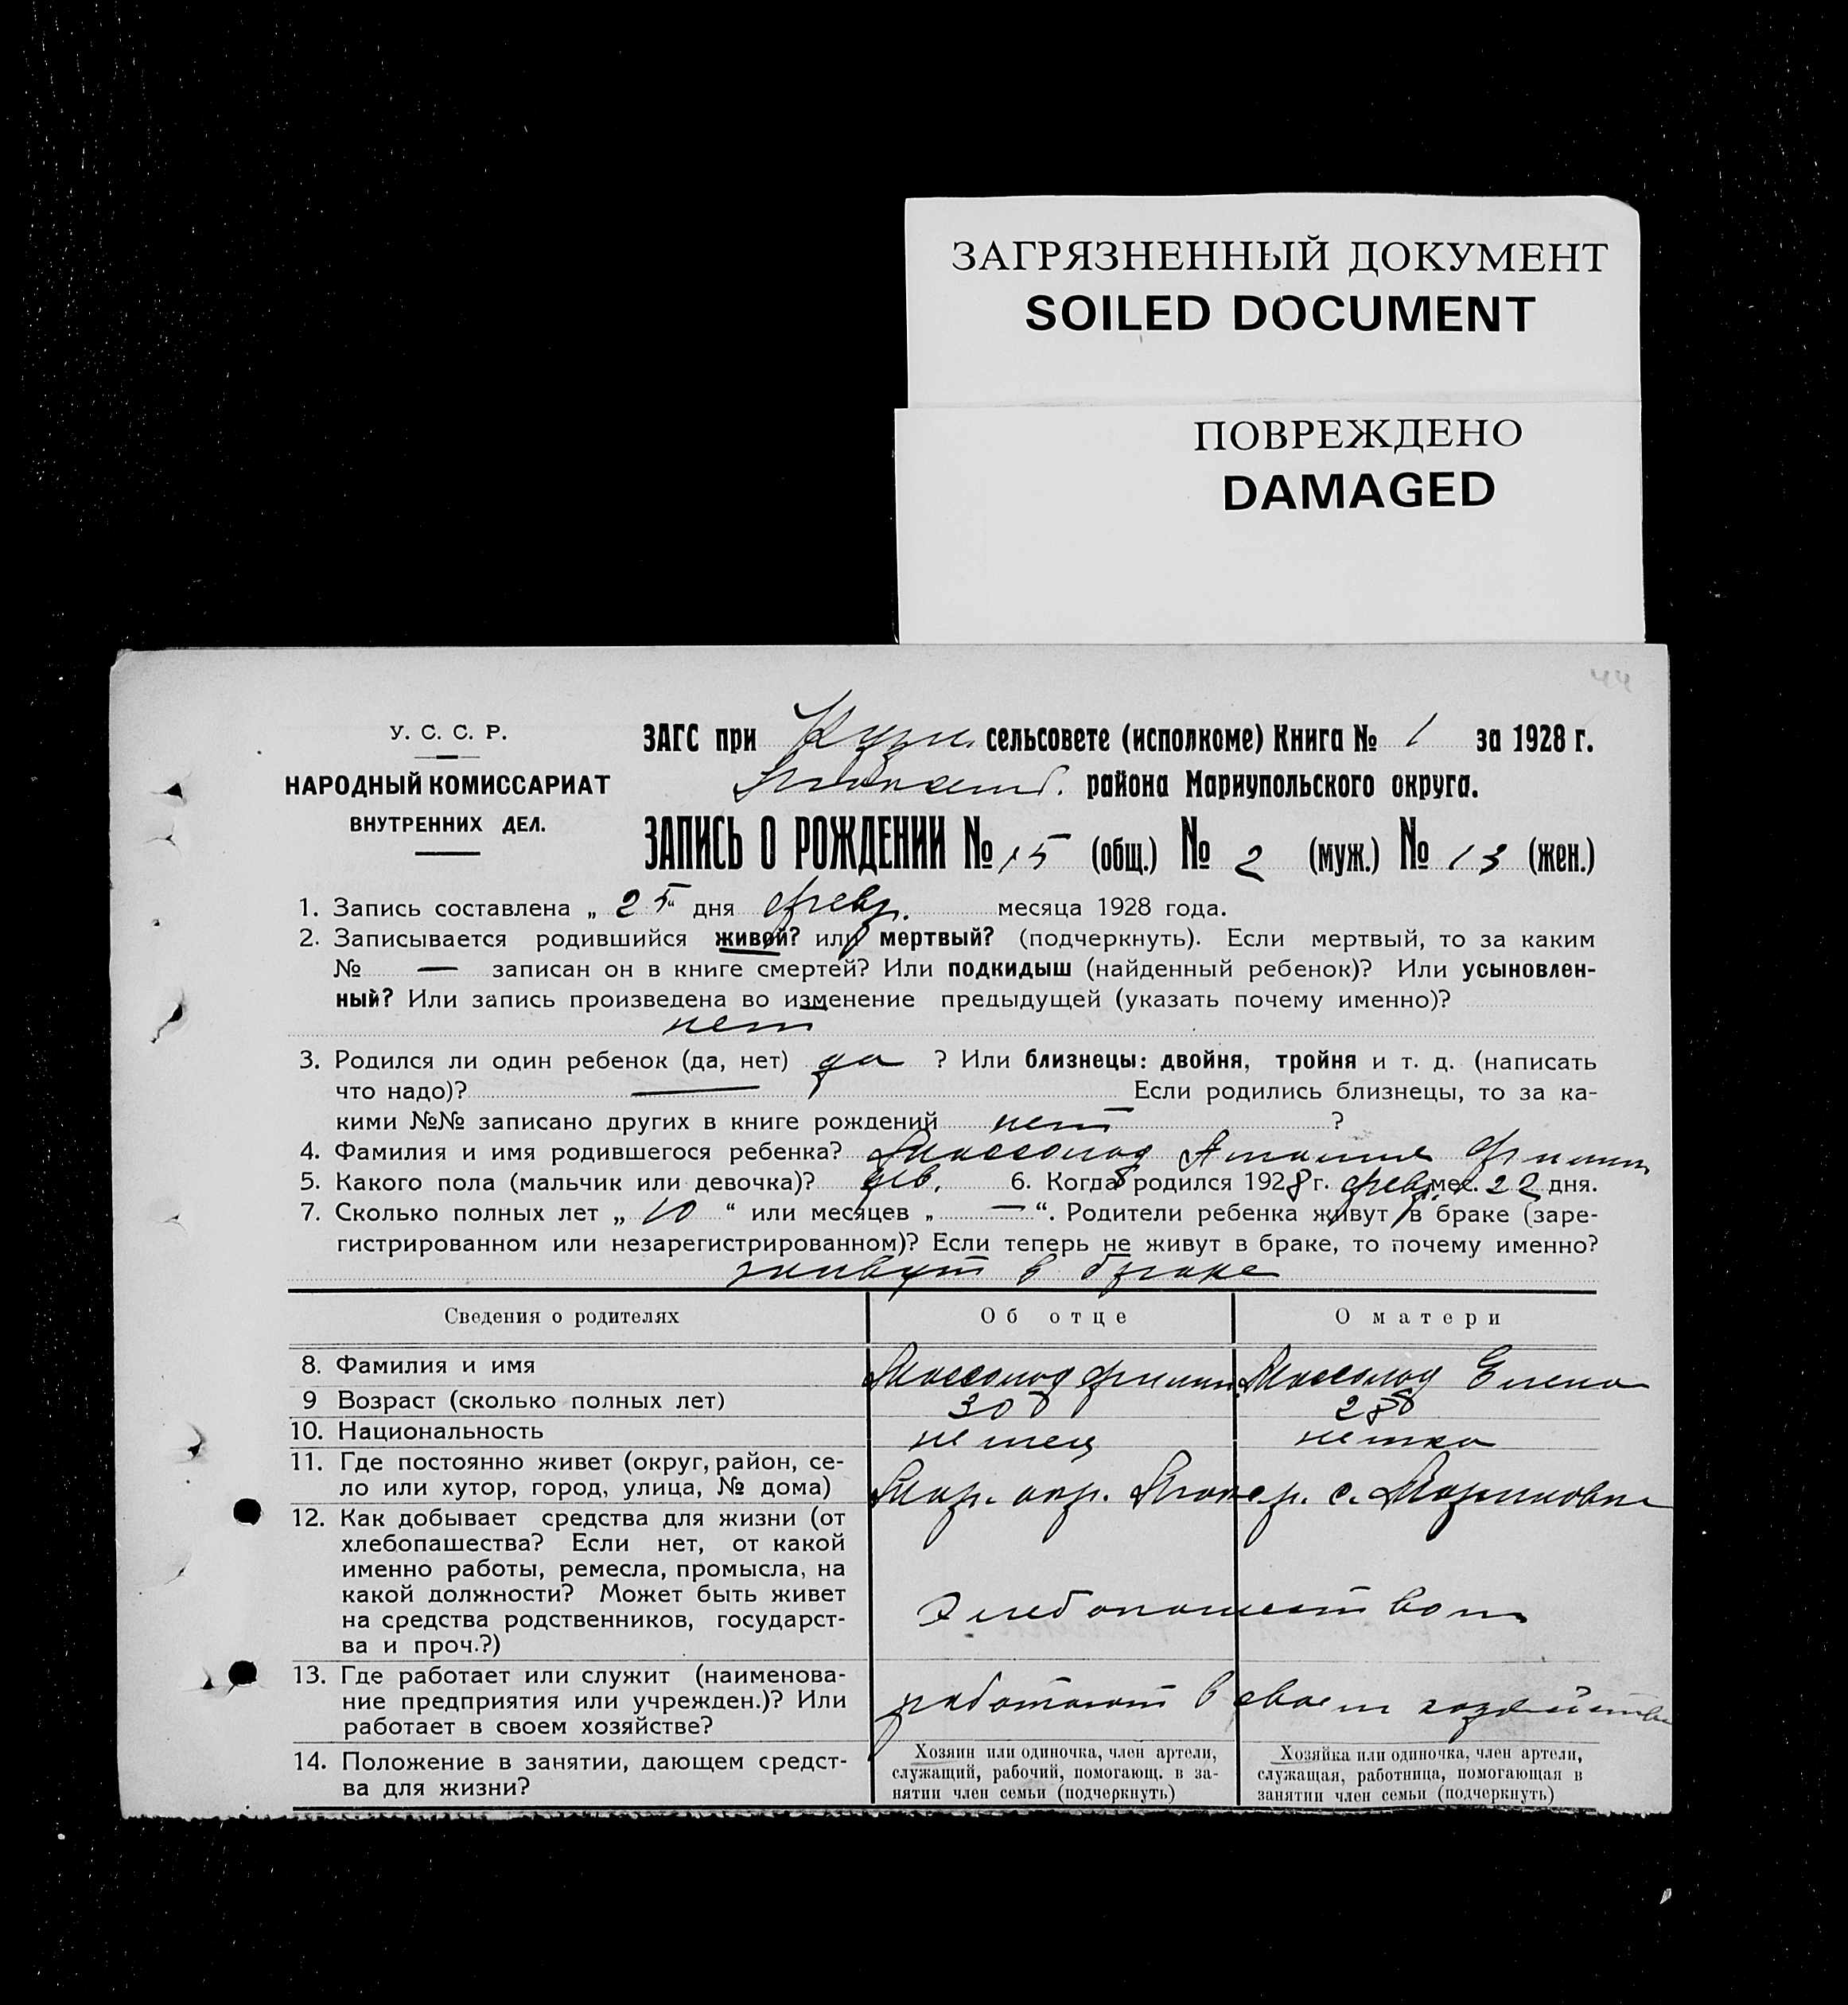 ЗАГРЯЗНЕННЫЙ ДОКУМЕНТ
SOILED DOCUMENT
ПОВРЕЖДЕНО
DAMAGED
44
У. С. С. Р.
НАРОДНЫЙ КОМИССАРИАТ
ВНУТРЕННИХ ДЕЛ.
ЗАГС при сельсовете (исполкоме) Книга № 1 за 1928 г.
района Мариупольского округа.
ЗАПИСЬ О РОЖДЕНИИ № 15 (общ.) № 2 (муж.) № 13 (жен.)
1. Запись составлена „ 25 “ дня февр. месяца 1928 года.
2. Записывается родившийся живой? или мертвый? (подчеркнуть). Если мертвый, то за каким
№ — записан он в книге смертей? Или подкидыш (найденный ребенок)? Или усыновлен-
ный? Или запись произведена во изменение предыдущей (указать почему именно)?
нет
3. Родился ли один ребенок (да, нет) да ? Или близнецы: двойня, тройня и т. д. (написать
что надо)? — Если родились близнецы, то за ка-
кими №№ записано других в книге рождений нет ?
4. Фамилия и имя родившегося ребенка?
5. Какого пола (мальчик или девочка)? дев. 6. Когда родился 1928 г. февр. мес. 22 дня.
7. Сколько полных лет „ 10 “ или месяцев „ — “. Родители ребенка живут в браке (заре-
гистрированном или незарегистрированном)? Если теперь не живут в браке, то почему именно?
живут в браке
Сведения о родителях Об отце О матери
8. Фамилия и имя Елена
9 Возраст (сколько полных лет) 30 28
10. Национальность немец немка
11. Где постоянно живет (округ, район, се-
ло или хутор, город, улица, № дома) Мар. окр. с.
12. Как добывает средства для жизни (от
хлебопашества? Если нет, от какой
именно работы, ремесла, промысла, на
какой должности? Может быть живет
на средства родственников, государст-
ва и проч.?)
Хлебопашеством
13. Где работает или служит (наименова-
ние предприятия или учрежден.)? Или
работает в своем хозяйстве?
работают в своем хозяйстве
14. Положение в занятии, дающем средст-
ва для жизни?
Хозяин или одиночка, член артели,
служащий, рабочий, помогающ. в за-
нятии член семьи (подчеркнуть)
Хозяйка или одиночка, член артели,
служащая, работница, помогающая в
занятии член семьи (подчеркнуть)